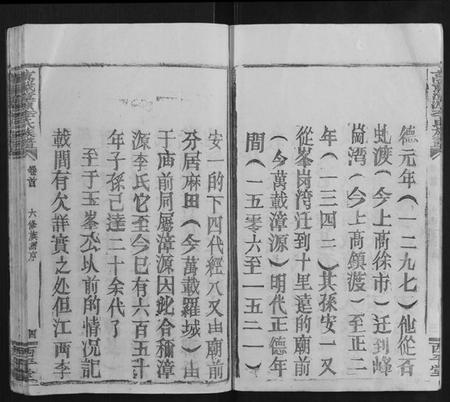 德元年（一二九七）他從舍
虬渡（今上高徐市）迁到峰
崗湾（今上高鎮渡）至正二
年（一三四二）其孫安一又
從峯崗湾迁到十里遠的廟前
（今萬載漳源）明代正德年
間（一五零六至一五二一）
安一的下四代經八又由廟前
分居麻田（今萬載羅城）由
于廟前同屬漳源因此合稱漳
源李氏它至今已有六百五十
年子孫已達二十余代了
至于玉峯公以前的情况記
載間有欠詳實之处但江西李
卷首
六修族譜序
四
西平堂